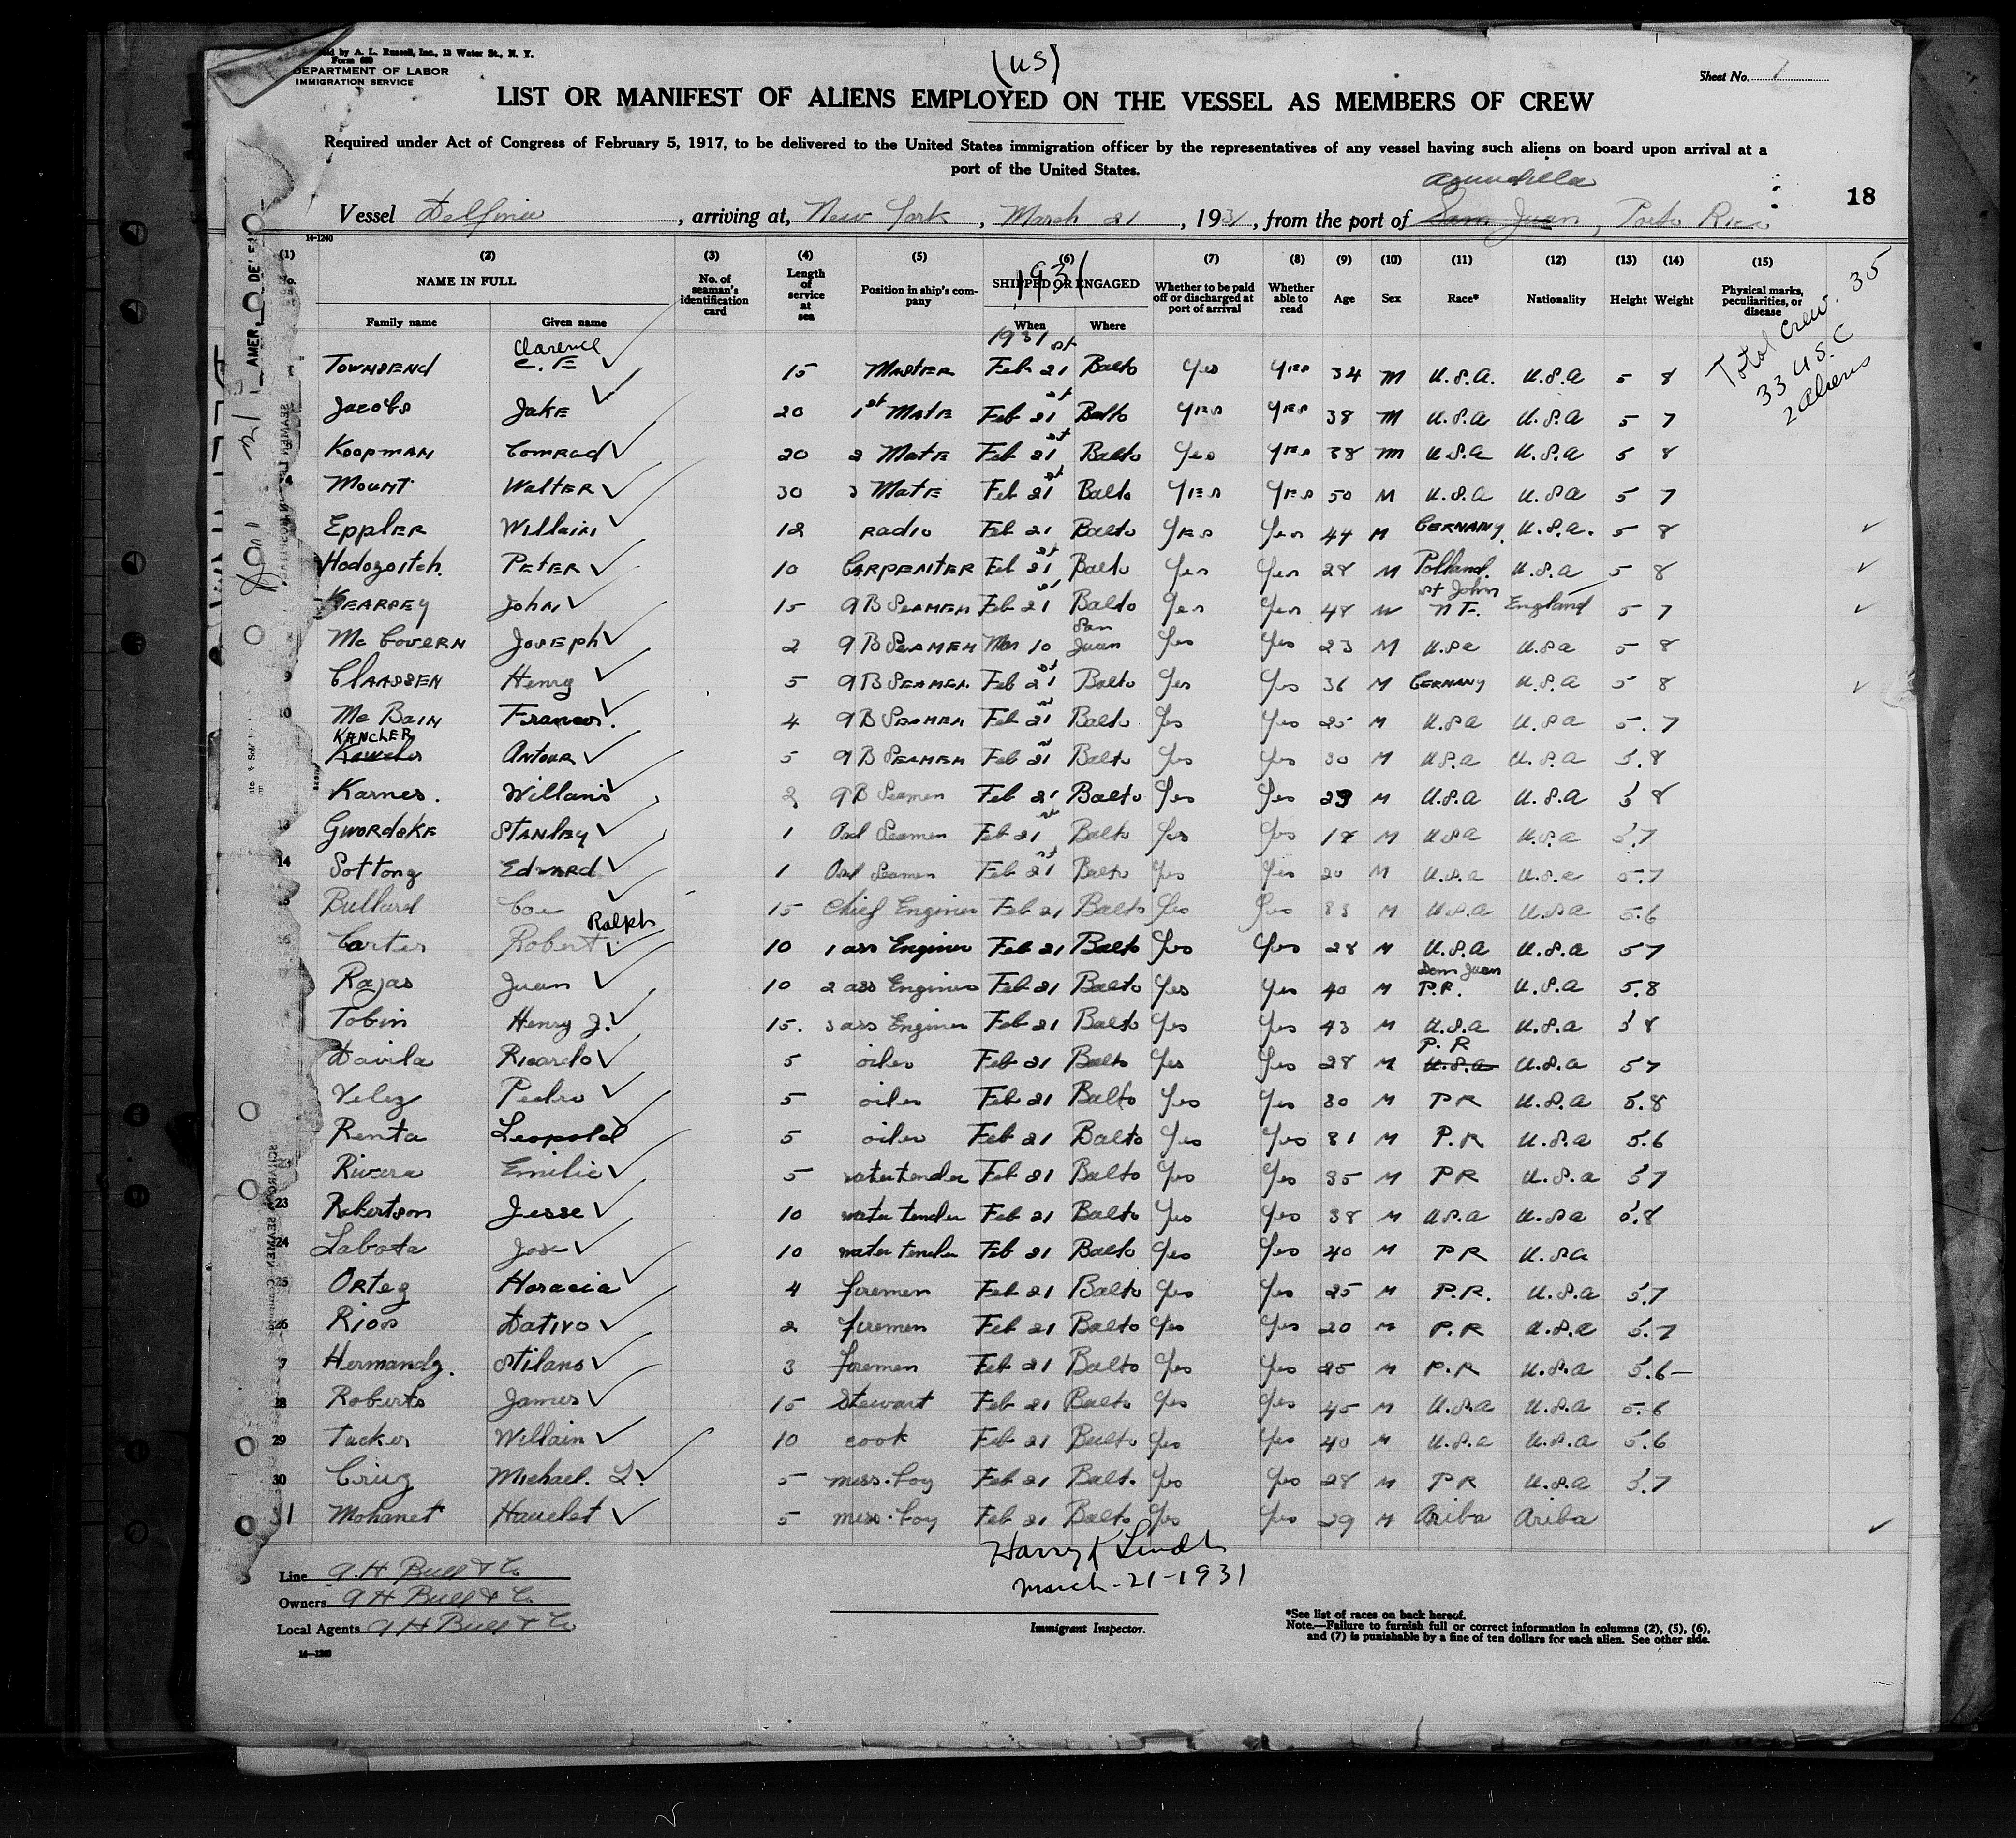 Sold by A. L. Russell, Inc., 12 Water St., N. Y.
Form 689
DEPARTMENT OF LABOR
IMMIGRATION SERVICE
(US)
Sheet No. 1
LIST OR MANIFEST OF ALIENS EMPLOYED ON THE VESSEL AS MEMBERS OF CREW
Required under Act of Congress of February 5, 1917, to be delivered to the United States immigration officer by the representatives of any vessel having such aliens on board upon arrival at a
port of the United States.
18
Vessel Delfina, arriving at, New York, March 21, 1931, from the port of San Juan, Porto Rico
14-1240
(1) (2) (3) (4) (5) (6) (7) (8) (9) (10) (11) (12) (13) (14) (15)
No. NAME IN FULL No. of seaman's identification card Length of service at sea Position in ship's company SHIPPED OR ENGAGED Whether to be paid off or discharged at port of arrival Whether able to read Age Sex Race* Nationality Height Weight Physical marks, peculiarities, or disease
Family name Given name When Where
1931
1931
Total Crew. 35
33 U.S.C
2 aliens
Townsend Clarence C. E 15 Master Feb 21st Balto Yes Yes 34 M U.S.A. U.S.A 5 8
Jacobs Jake 20 1st Mate Feb 21st Balto Yes Yes 38 M U.S.A U.S.A 5 7
Koopman Conrad 20 2 Mate Feb 21st Balto Yes Yes 38 M U.S.A U.S.A 5 8
4 Mount Walter 30 3 Mate Feb 21st Balto Yes Yes 50 M U.S.A U.S.A 5 7
Eppler Williain 12 Radio Feb 21 Balto Yes Yes 44 M Germany. U.S.A. 5 8
Hodozoitch. Peter 10 Carpenter Feb 21st Balto Yes Yes 28 M Polland. U.S.A 5 8
Kearpey John 15 AB Seamen Feb 21st Balto Yes Yes 48 M St John N F. England 5 7
McGovern Joseph 2 AB Seamen Mar 10 San Juan Yes Yes 23 M U.S.A U.S.A 5 8
9 Claassen Henry 5 AB Seamen Feb 21st Balto Yes Yes 36 M Germany U.S.A 5 8
10 McBain Frances. 4 AB Seamen Feb 21st Balto Yes Yes 25 M U.S.A U.S.A 5. 7
Kancler Antour 5 AB Seamen Feb 21st Balto Yes Yes 30 M U.S.A U.S.A 5.8
Karnes. Willanis 2 AB Seamen Feb 21 Balto Yes Yes 29 M U.S.A U.S.A 5 8
13 Gwordske Stanley 1 Ord Seamen Feb 21st Balto Yes Yes 18 M U.S.A U.S.A 5.7
14 Sottong Edward 1 Ord Seamen Feb 21st Balto Yes Yes 20 M U.S.A U.S.A 5.7
Bullard Coe 15 Chief Enginer Feb 21 Balto Yes Yes 33 M U.S.A U.S.A 5.6
16 Carter Robert Ralph 10 1 ass Enginer Feb 21 Balto Yes Yes 28 M U.S.A U.S.A 5 7
Rajas Juan 10 2 ass Enginer Feb 21 Balto Yes Yes 40 M San Juan P.R. U.S.A 5.8
Tobin Henry J. 15. 3 ass Enginer Feb 21 Balto Yes Yes 43 M U.S.A U.S.A 5 8
Davila Ricardo 5 oiler Feb 21 Balto Yes Yes 28 M P. R U.S.A U.S.A 5 7
Velez Pedro 5 oiler Feb 21 Balto Yes Yes 30 M P R U.S.A 5.8
Renta Leopold 5 oiler Feb 21 Balto Yes Yes 31 M P. R U.S.A 5.6
Rivera Emilie 5 water tender Feb 21 Balto Yes Yes 35 M P R U.S.A 5 7
23 Robertson Jesse 10 water tender Feb 21 Balto Yes Yes 38 M U.S.A U.S.A 5.8
24 Labota Jose 10 water tender Feb 21 Balto Yes Yes 40 M P R U.S.A
25 Ortez Horacia 4 firemen Feb 21 Balto Yes Yes 25 M P.R. U.S.A 5.7
26 Rios Dativo 2 firemen Feb 21 Balto Yes Yes 20 M P.R U.S.A 5.7
7 Hermandz. Stilano 3 firemen Feb 21 Balto Yes Yes 25 M P.R U.S.A 5.6
28 Roberts James 15 Stewart Feb 21 Balto Yes Yes 45 M U.S.A U.S.A 5.6
29 Tucker Willain 10 cook Feb 21 Balto Yes Yes 40 M U.S.A U.S.A 5.6
30 Cruz Michael. L. 5 mess.boy Feb 21 Balto. Yes Yes 28 M P R U.S.A 5.7
31 Mohanet Hauelet 5 mess.boy Feb 21 Balto Yes Yes 29 M Ariba Ariba
Line A. H. Bull & Co
Owners A H Bull & Co
Local Agents A H Bull & Co
14-1240
Harry K Lindh
March-21-1931
Immigrant Inspector.
*See list of races on back hereof.
Note.—Failure to furnish full or correct information in columns (2), (5), (6),
and (7) is punishable by a fine of ten dollars for each alien. See other side.